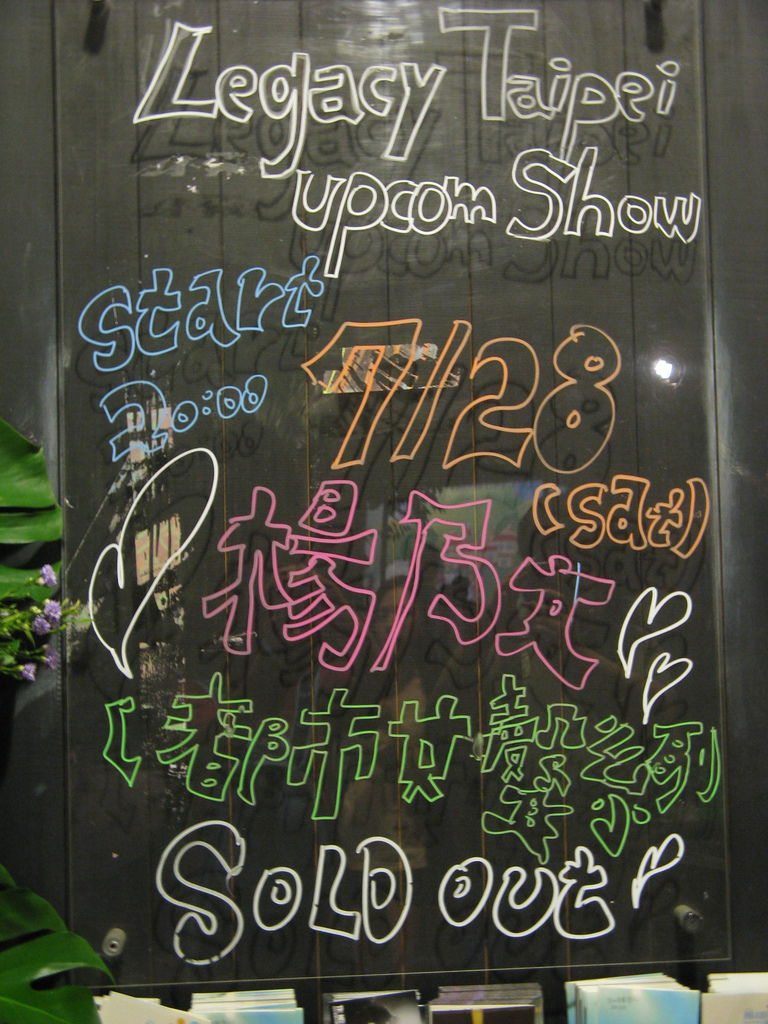 Legacy Taipei
upcom Show
Start
20:00
7/28
(Sat)
楊乃文
(都市女聲系列
SOLD OUt